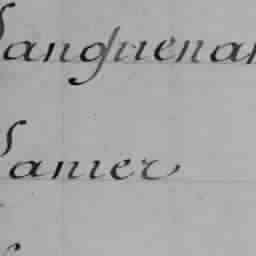 Sanguenar
Sanier